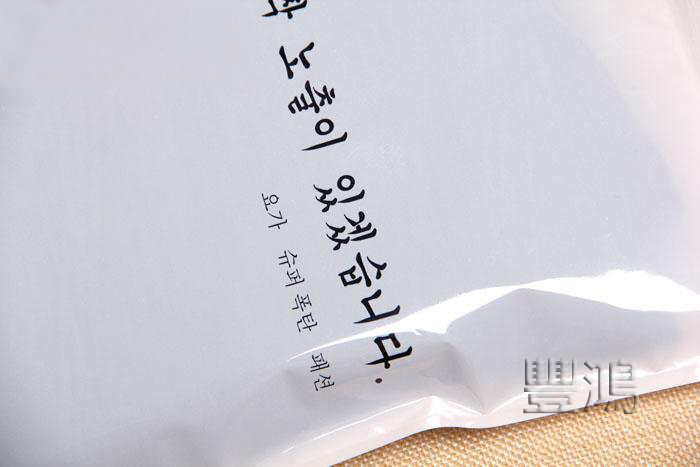 노출이 있겠습니다.
요가 슈퍼 폭탄 패션
豐鴻